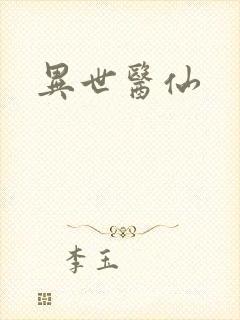 異世醫仙
李玉